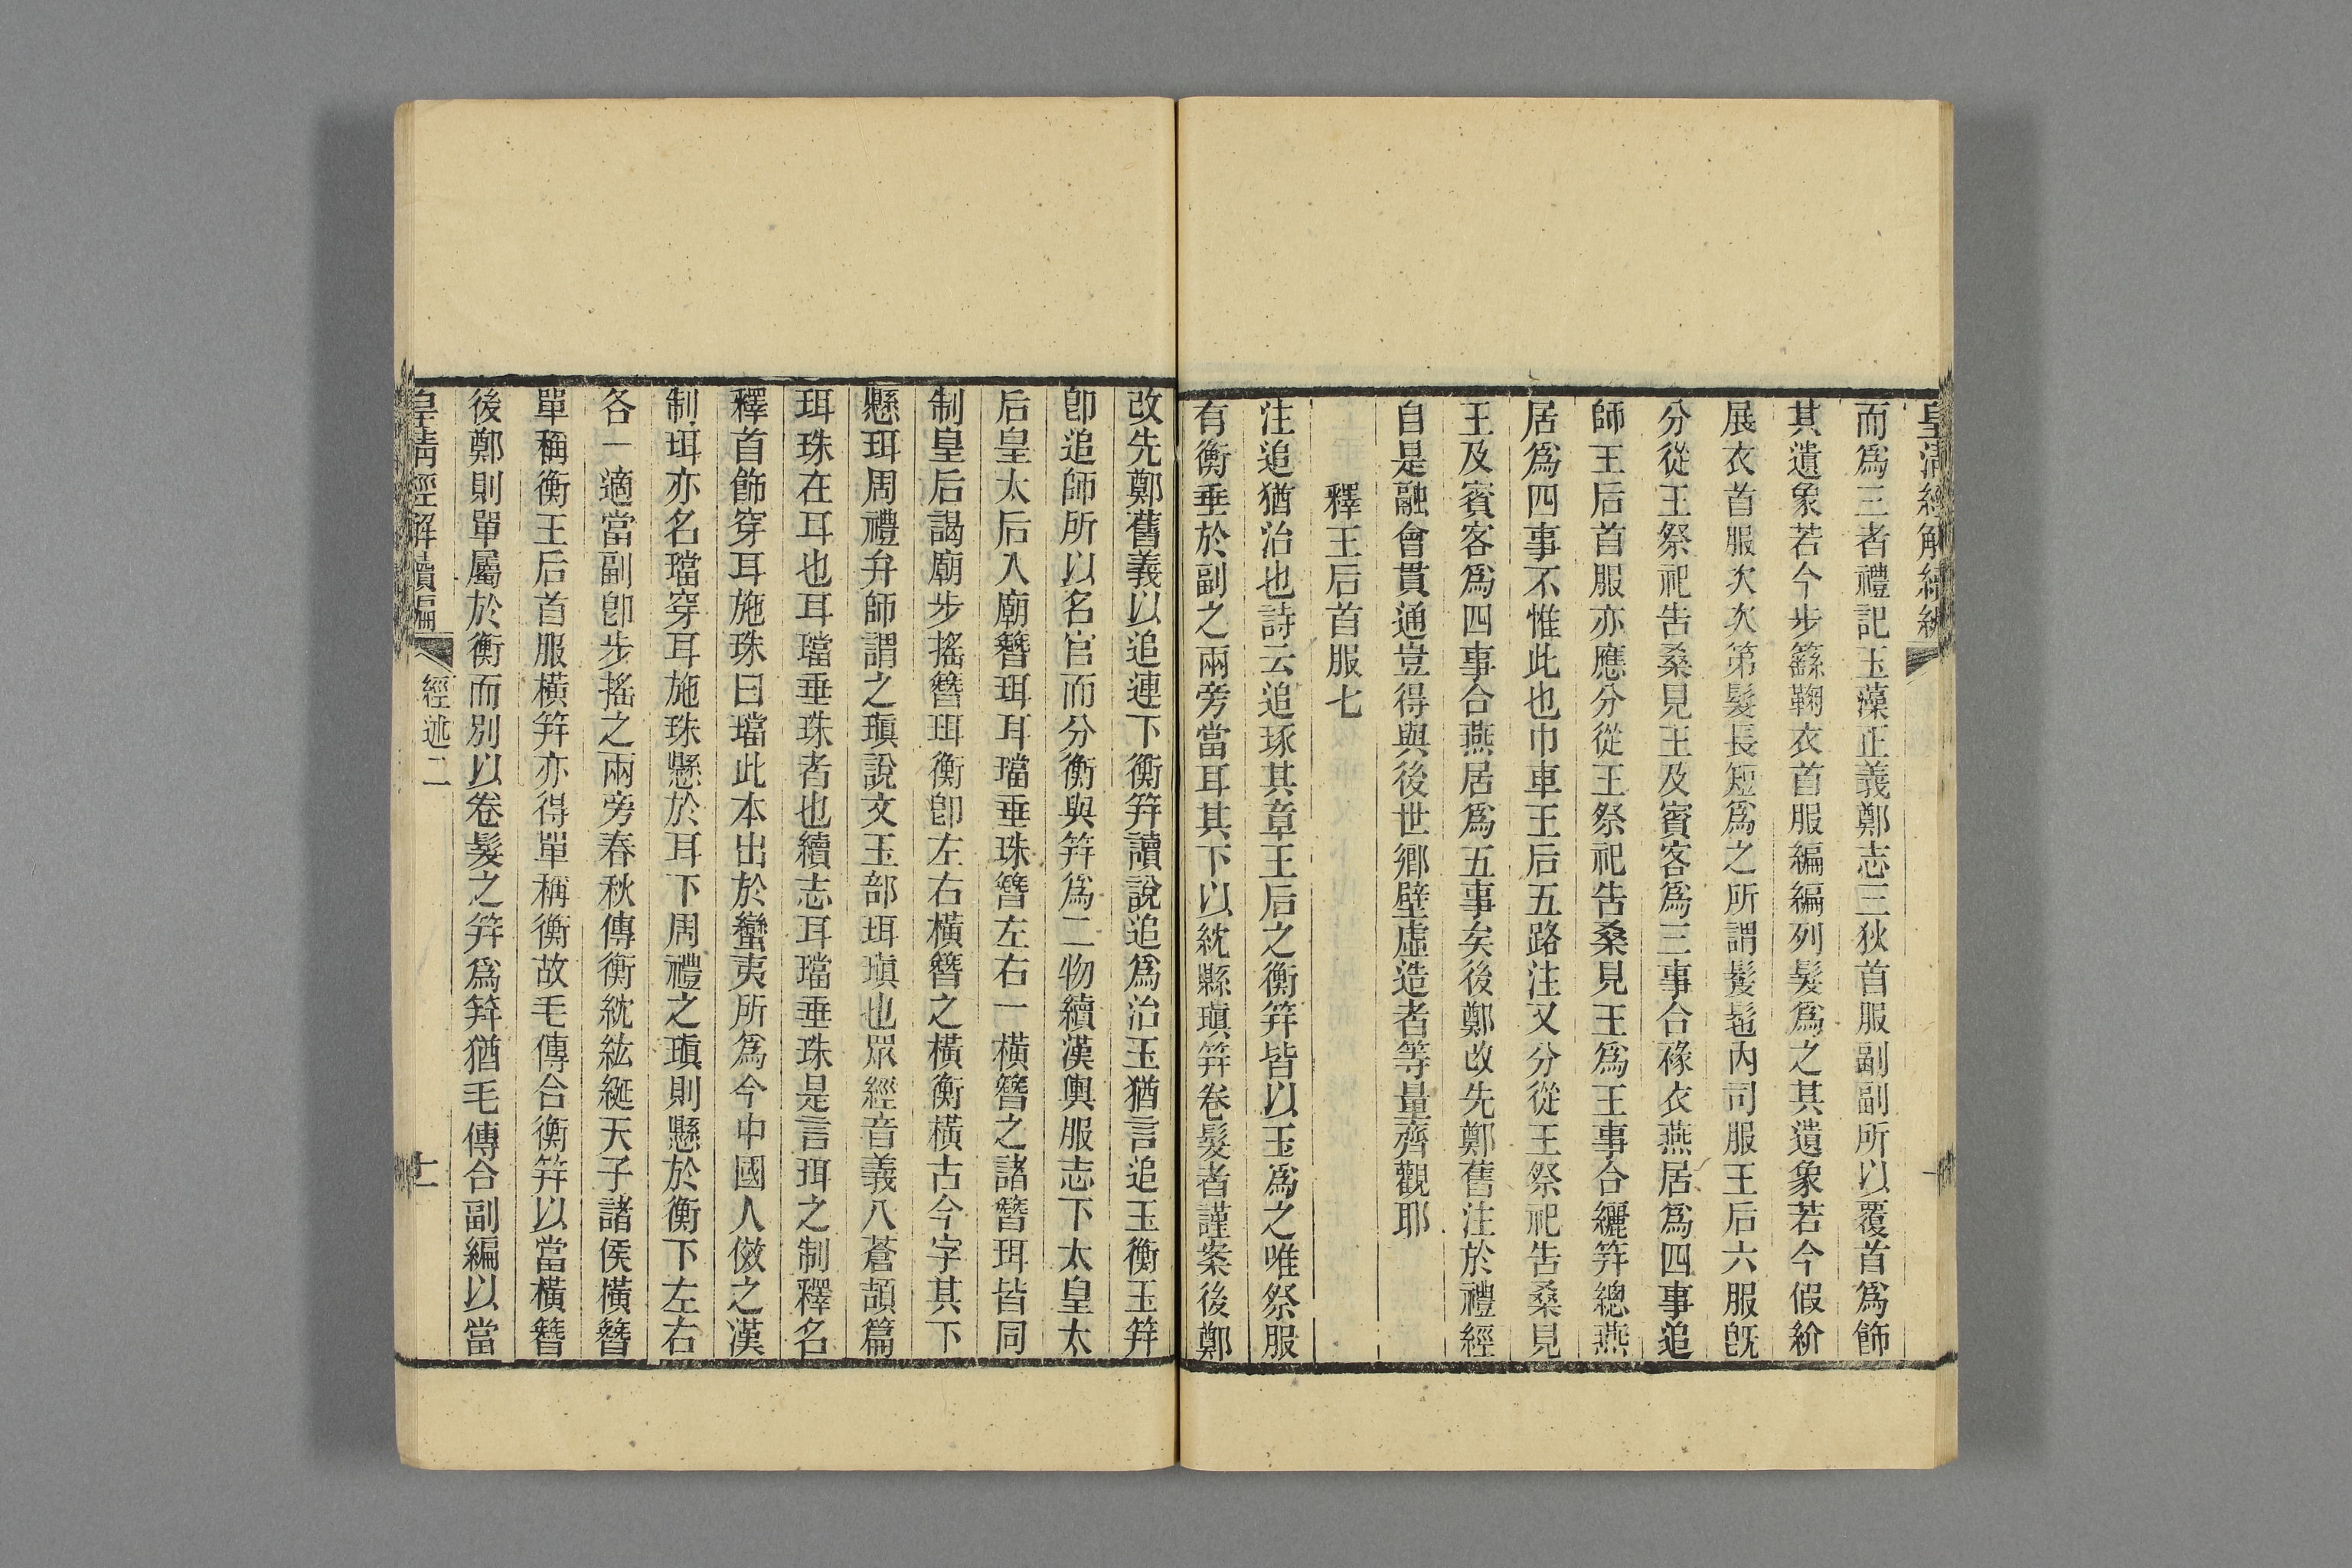 皇清經解續編
而爲三者禮記玉藻正義鄭志三狄首服副副所以覆首爲飾
其遺象若今步繇鞠衣首服編編列髮爲之其遺象若今假紒
展衣首服次次第髮長短爲之所謂髲髢內司服王后六服旣
分從王祭祀告桑見王及賓客爲三事合褖衣燕居爲四事追
師王后首服亦應分從王祭祀告桑見王爲王事合纚笄總燕
居爲四事不惟此也巾車王后五路注又分從王祭祀告桑見
王及賓客爲四事合燕居爲五事矣後鄭改先鄭舊注於禮經
自是融會貫通豈得與後世鄉壁虛造者等量齊觀耶
釋王后首服七
注追猶治也詩云追琢其章王后之衡笄皆以玉爲之唯祭服
有衡垂於副之兩旁當耳其下以紞縣瑱笄卷髮者謹案後鄭
改先鄭舊義以追連下衡笄讀說追爲治玉猶言追玉衡玉笄
卽追師所以名官而分衡與笄爲二物續漢輿服志下太皇太
后皇太后入廟簪珥耳璫垂珠簪左右一橫簪之諸簪珥皆同
制皇后謁廟步搖簪珥衡卽左右橫簪之橫衡橫古今字其下
懸珥周禮弁師謂之瑱說文玉部珥瑱也眾經音義八蒼頡篇
珥珠在耳也耳璫垂珠者也續志耳璫垂珠是言珥之制釋名
釋首飾穿耳施珠曰璫此本出於蠻夷所爲今中國人倣之漢
制珥亦名璫穿耳施珠懸於耳下周禮之瑱則懸於衡下左右
各一適當副卽步搖之兩旁春秋傳衡紞紘綖天子諸侯橫簪
單稱衡王后首服橫笄亦得單稱衡故毛傳合衡笄以當橫簪
後鄭則單屬於衡而別以卷髮之笄爲笄猶毛傳合副編以當
皇清經解續編 經述二 十一